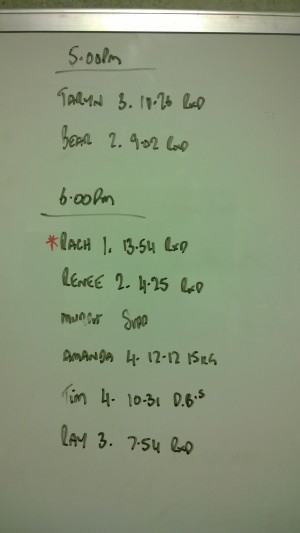 5.00pm
TARYN 3. 17.26 RxD
BEAR 2. 9.02 RxD
6.00pm
*RACH 1. 13.54 RxD
RENEE 2. 4.25 RxD
AMANDA 4. 12.12 15KG
Tim 4. 10-31 D.B.S
RAY 3. 7.54 RxD